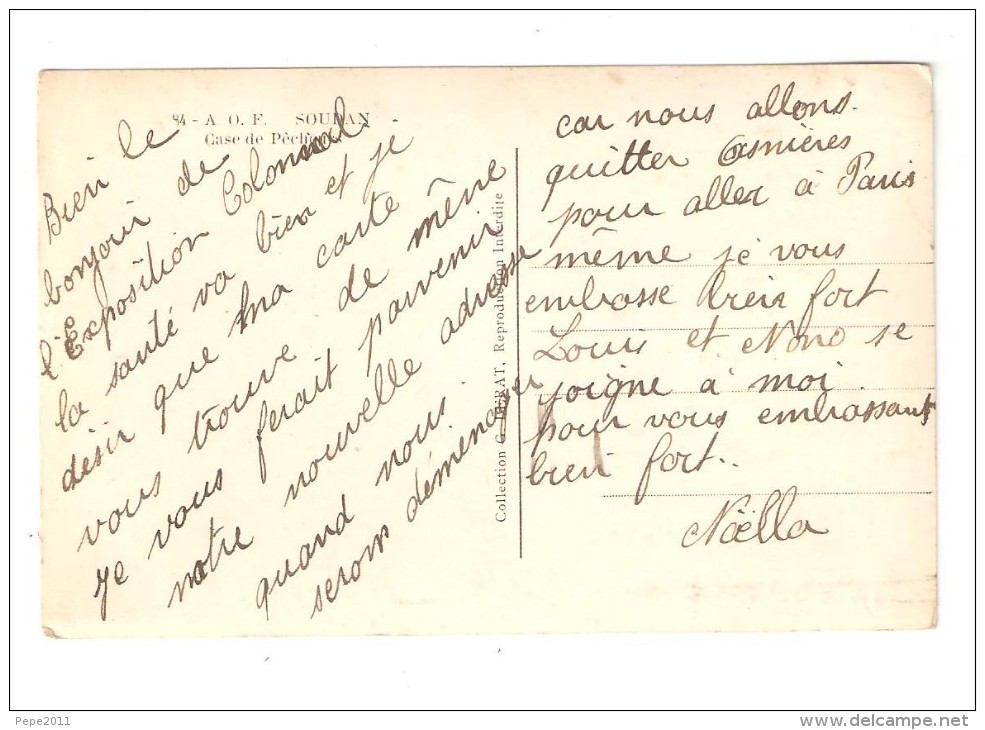 84 - A. O. F. SOUDAN
Case de Pêcheurs
Bien le
bonjour de
l'Exposition Colonial
la santé va bien et je
désir que ma carte
vous trouve de même
je vous ferait parvenir
notre nouvelle adresse
quand nous
serons déménager
Collection G. LERAT, Reproduction Interdite
car nous allons.
quitter Asnières
pour aller à Paris
même je vous
embrasse bien fort
Louis et Nono se
joigne à moi
pour vous embrassant
bien fort..
Noëlla
Pepe2011
www.delcampe.net